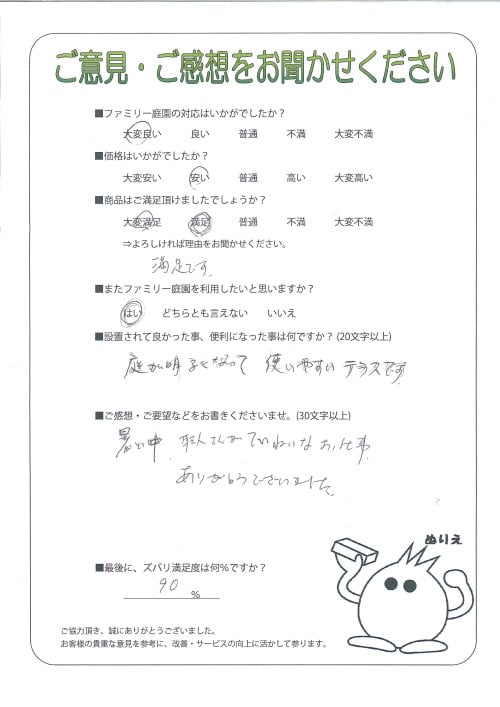 ご意見・ご感想をお聞かせください
■ファミリー庭園の対応はいかがでしたか？
大変良い　良い　普通　不満　大変不満
■価格はいかがでしたか？
大変安い　安い　普通　高い　大変高い
■商品はご満足頂けましたでしょうか？
大変満足　満足　普通　不満　大変不満
⇒よろしければ理由をお聞かせください。
満足です。
■またファミリー庭園を利用したいと思いますか？
はい　どちらとも言えない　いいえ
■設置されて良かった事、便利になった事は何ですか？(20文字以上)
庭が明るくなって 使いやすい テラスです
■ご感想・ご要望などをお書きくださいませ。(30文字以上)
暑い中、職人さんがていねいなお仕事
ありがとうございました。
ぬりえ
■最後に、ズバリ満足度は何％ですか？
90 ％
ご協力頂き、誠にありがとうございました。
お客様の貴重な意見を参考に、改善・サービスの向上に活かして参ります。